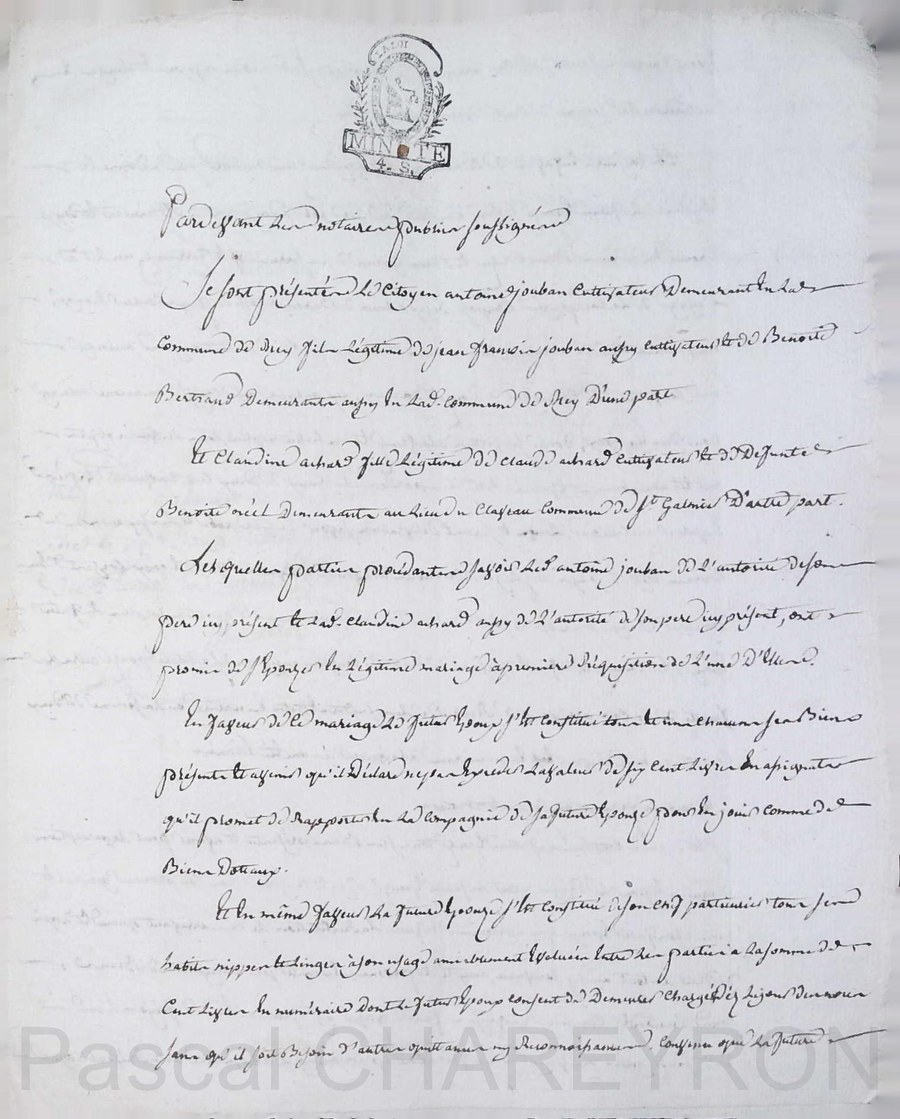 LA LOI
MINUTE
4. S.
Pardevant Les notaires publics soussignés
Se sont présentés Le Citoyen antoine jouban Cultivateur Demeurant En La
Commune de fils Légitime de jean françois jouban aussy cultivateur Et de Benoite
Bertrand Demeurants aussy En Lad. Commune de D'une part
Et Claudine achard fille Légitime de Claude achard Cultivateur Et de Defunte
Benoite Demeurante au Lieu du Commune de St. Galmier D'autre part.
Lesquelles parties procédantes savoir Led. antoine jouban de L'autorité de son
pere icy présent Et Lad. Claudine achard aussy de L'autorité de son pere icy présent, ont
promis de s'Epouzer En Légitime mariage à premiere Réquisition de L'une D'Elles.
En faveur de Ce mariage Le futur Epoux s'Est Constitué tous Et uns Chacuns ses Biens
présents Et avenir qu'il Déclare ne pas Excéder La valeur de six Cent Livres En assignats
qu'il promet de Rapporter En La Compagnie de sa future Epouze pour En jouir Comme de
Biens Dotaux.
Et En même faveur La future Epouze s'Est Constitué de son Chef particulier tous ses
habits nippes Et Linges à son usage ameublement Evalués Entre Les parties a La somme de
Cent Livres En numéraire Dont Le futur Epoux Consent de Demeurer Chargé
sans qu'il soit Besoin d'autre quittance ny Reconnoissance. Consent que La future
Pascal CHAREYRON